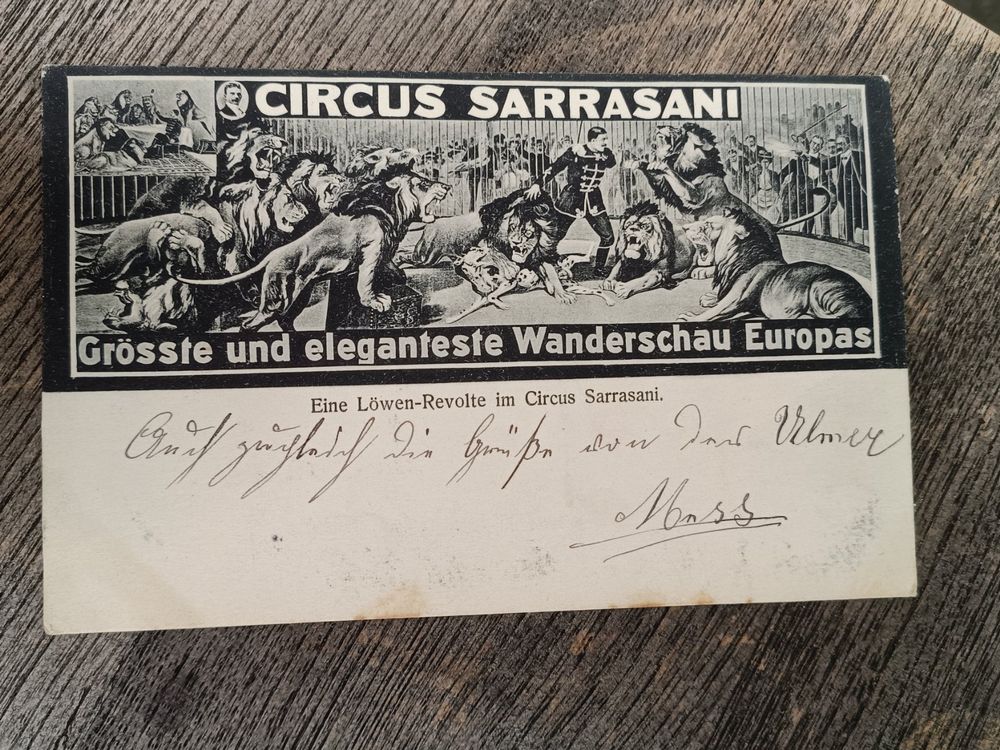 CIRCUS SARRASANI
Grösste und eleganteste Wanderschau Europas
Eine Löwen-Revolte im Circus Sarrasani.
Auch zugleich die Grüße von der Ulmer
Mess